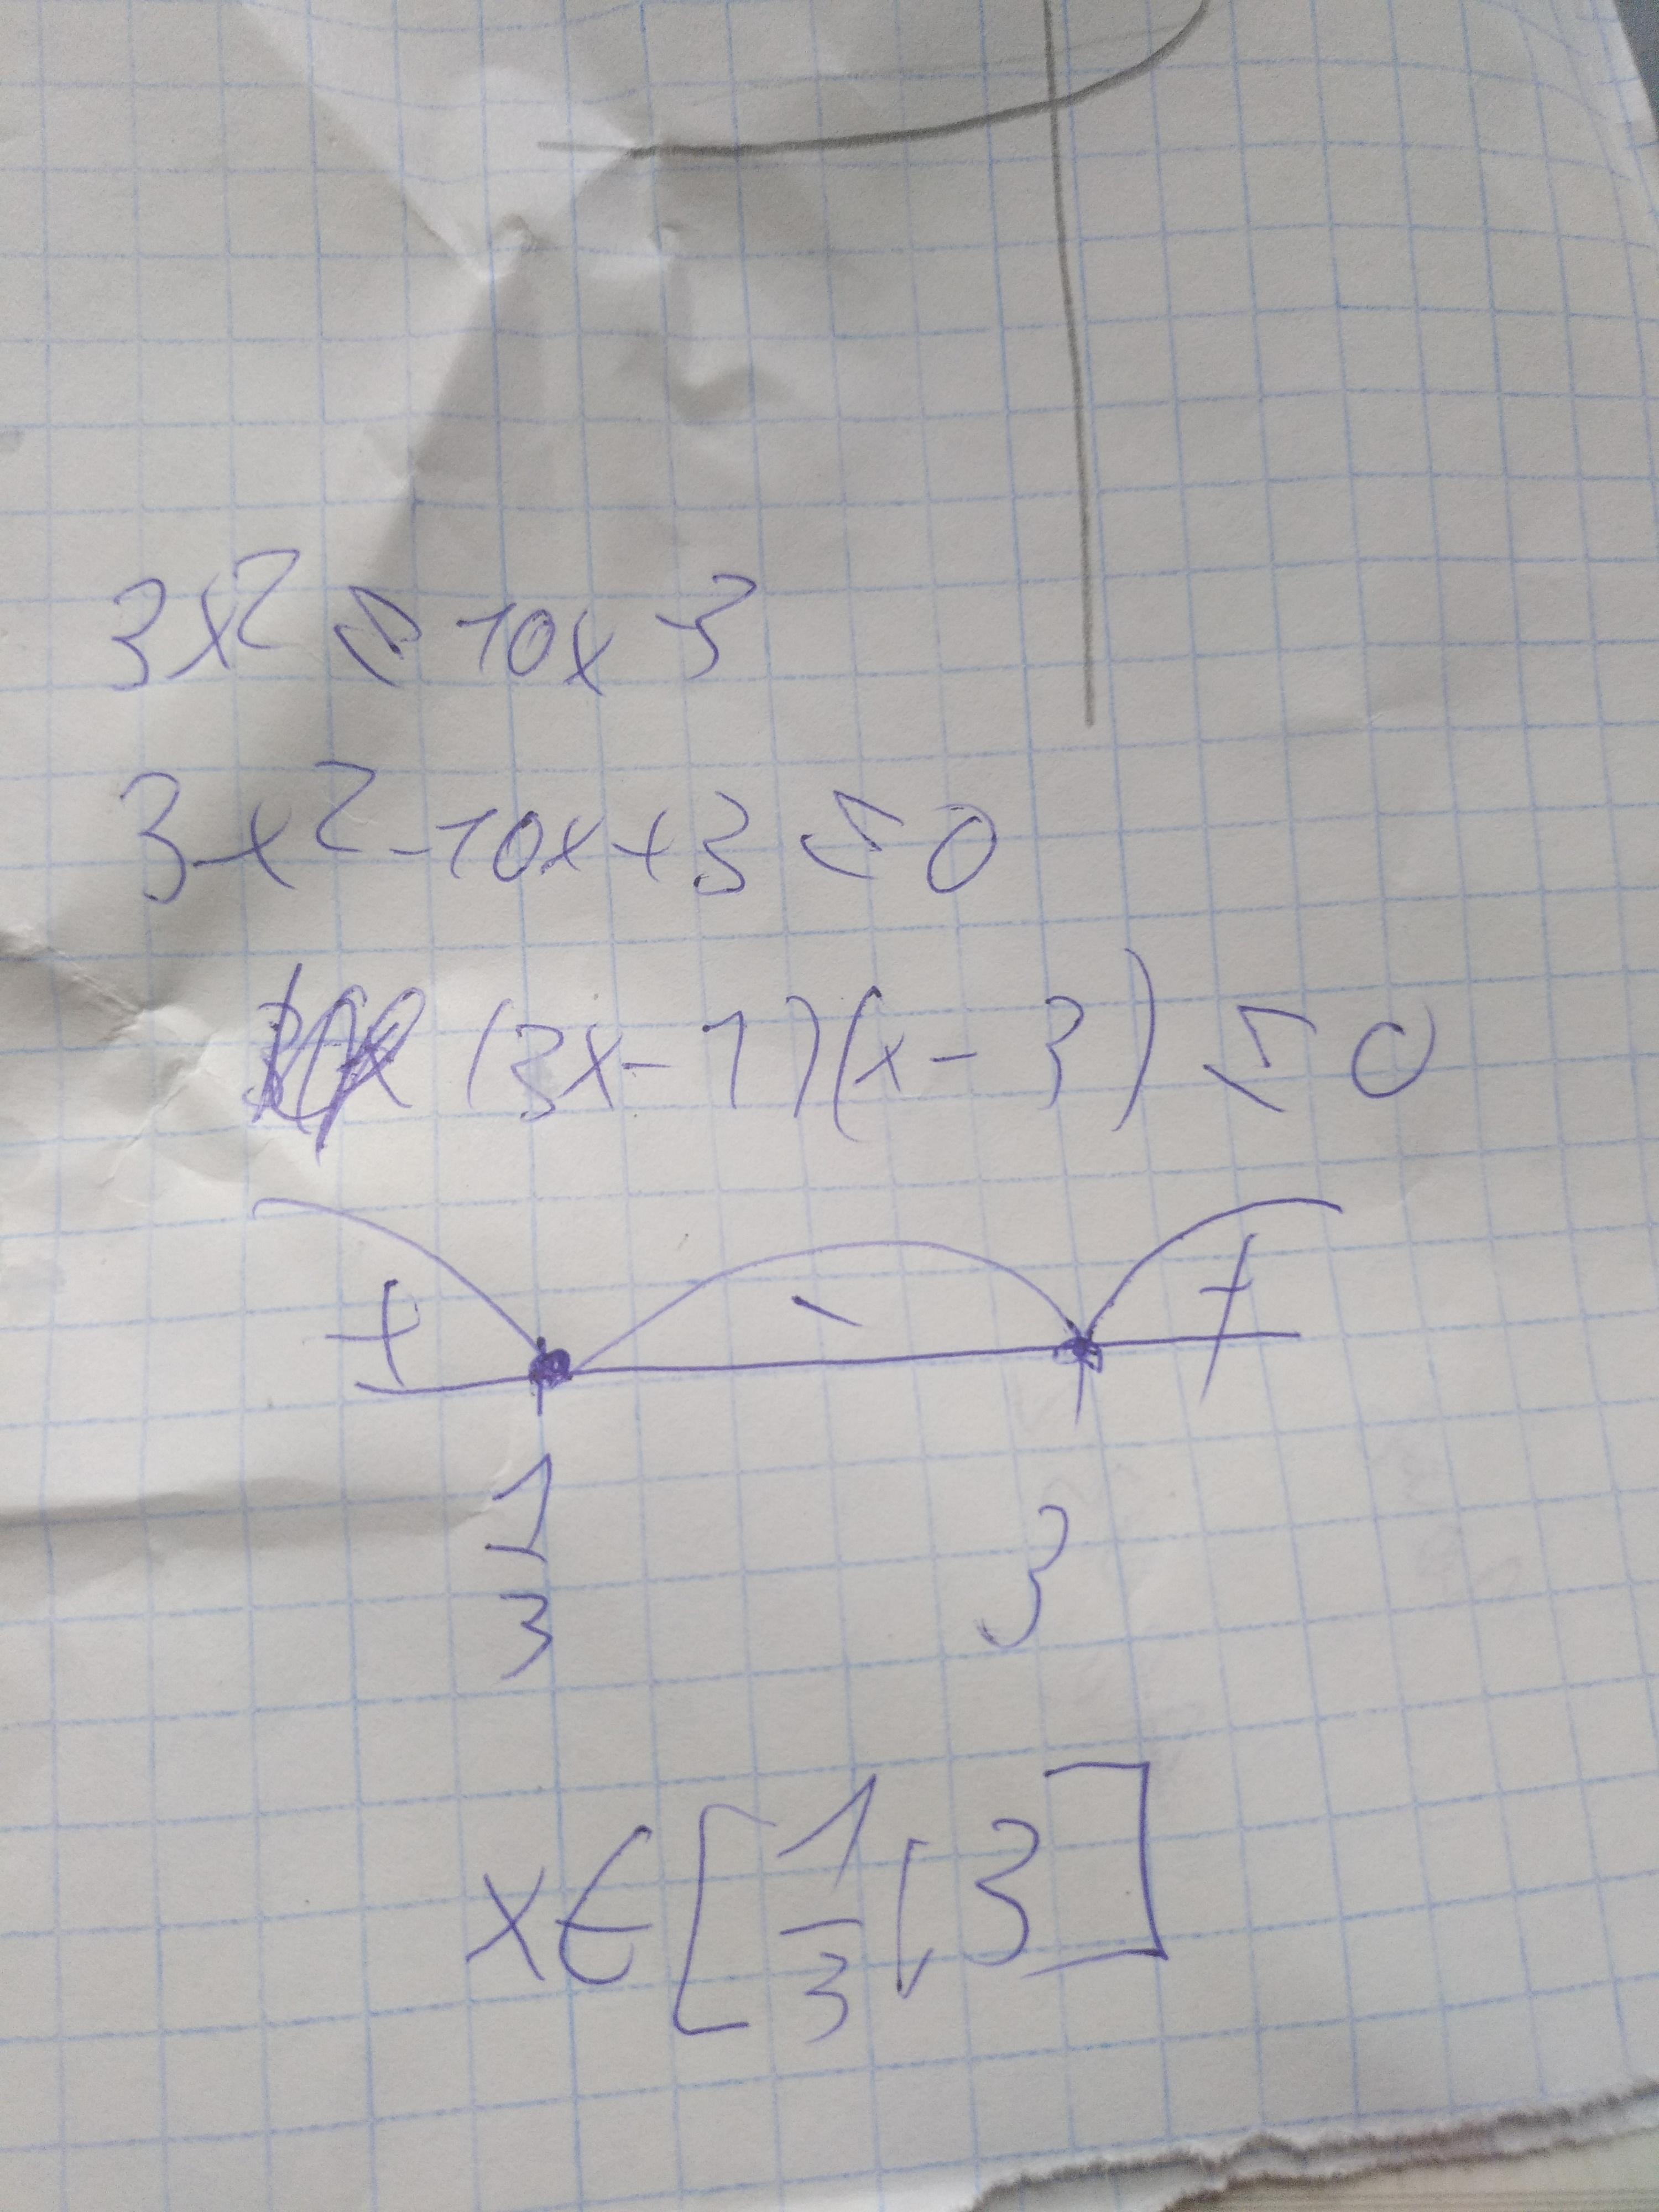 3x² ≤ 10x - 3
3x² - 10x + 3 ≤ 0
(3x - 1)(x - 3) ≤ 0
+ - +
1/3 3
x ∈ [1/3; 3]